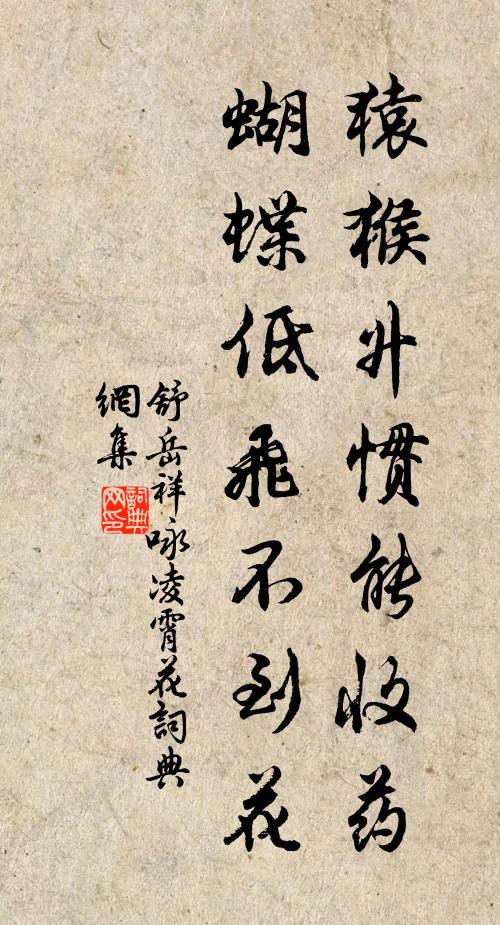 猿猴升惯能收药
蝴蝶低飞不到花
舒岳祥咏凌霄花詞典
網集
詞典网印